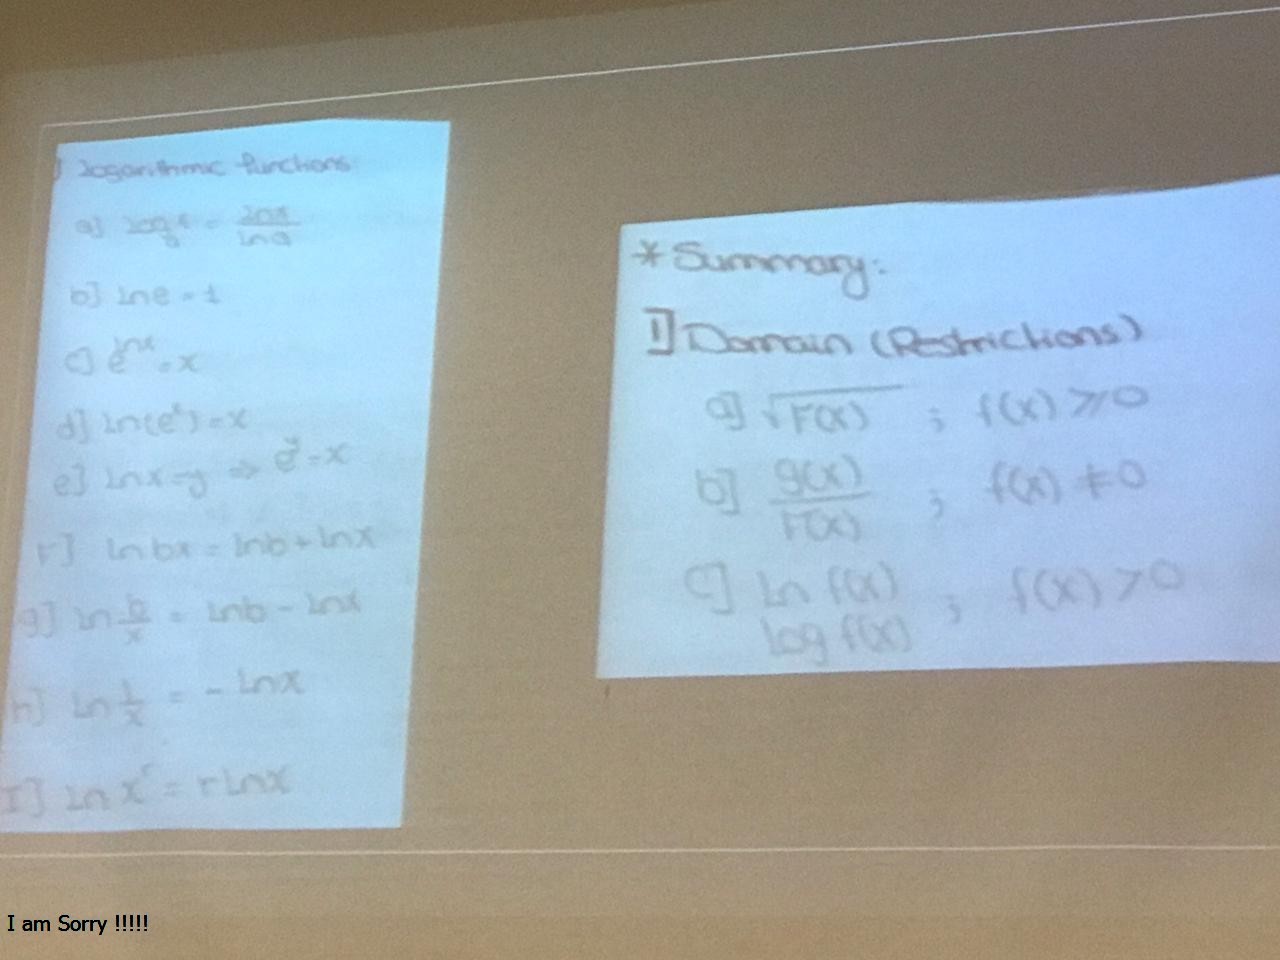 ] logarithmic functions:
a] log_a x = lnx/lna
b] lne = 1
c] e^lnx = x
d] ln(e^x) = x
e] lnx=y ⇒ e^y = x
F] ln bx = lnb + lnx
g] ln b/x = lnb - lnx
h] ln 1/x = - lnx
I] ln x^r = r lnx
* Summary:
1] Domain (Restrictions)
a] √F(x) ; f(x) ≥ 0
b] g(x)/F(x) ; f(x) ≠ 0
c] ln f(x) ; f(x) > 0
log f(x)
I am Sorry !!!!!